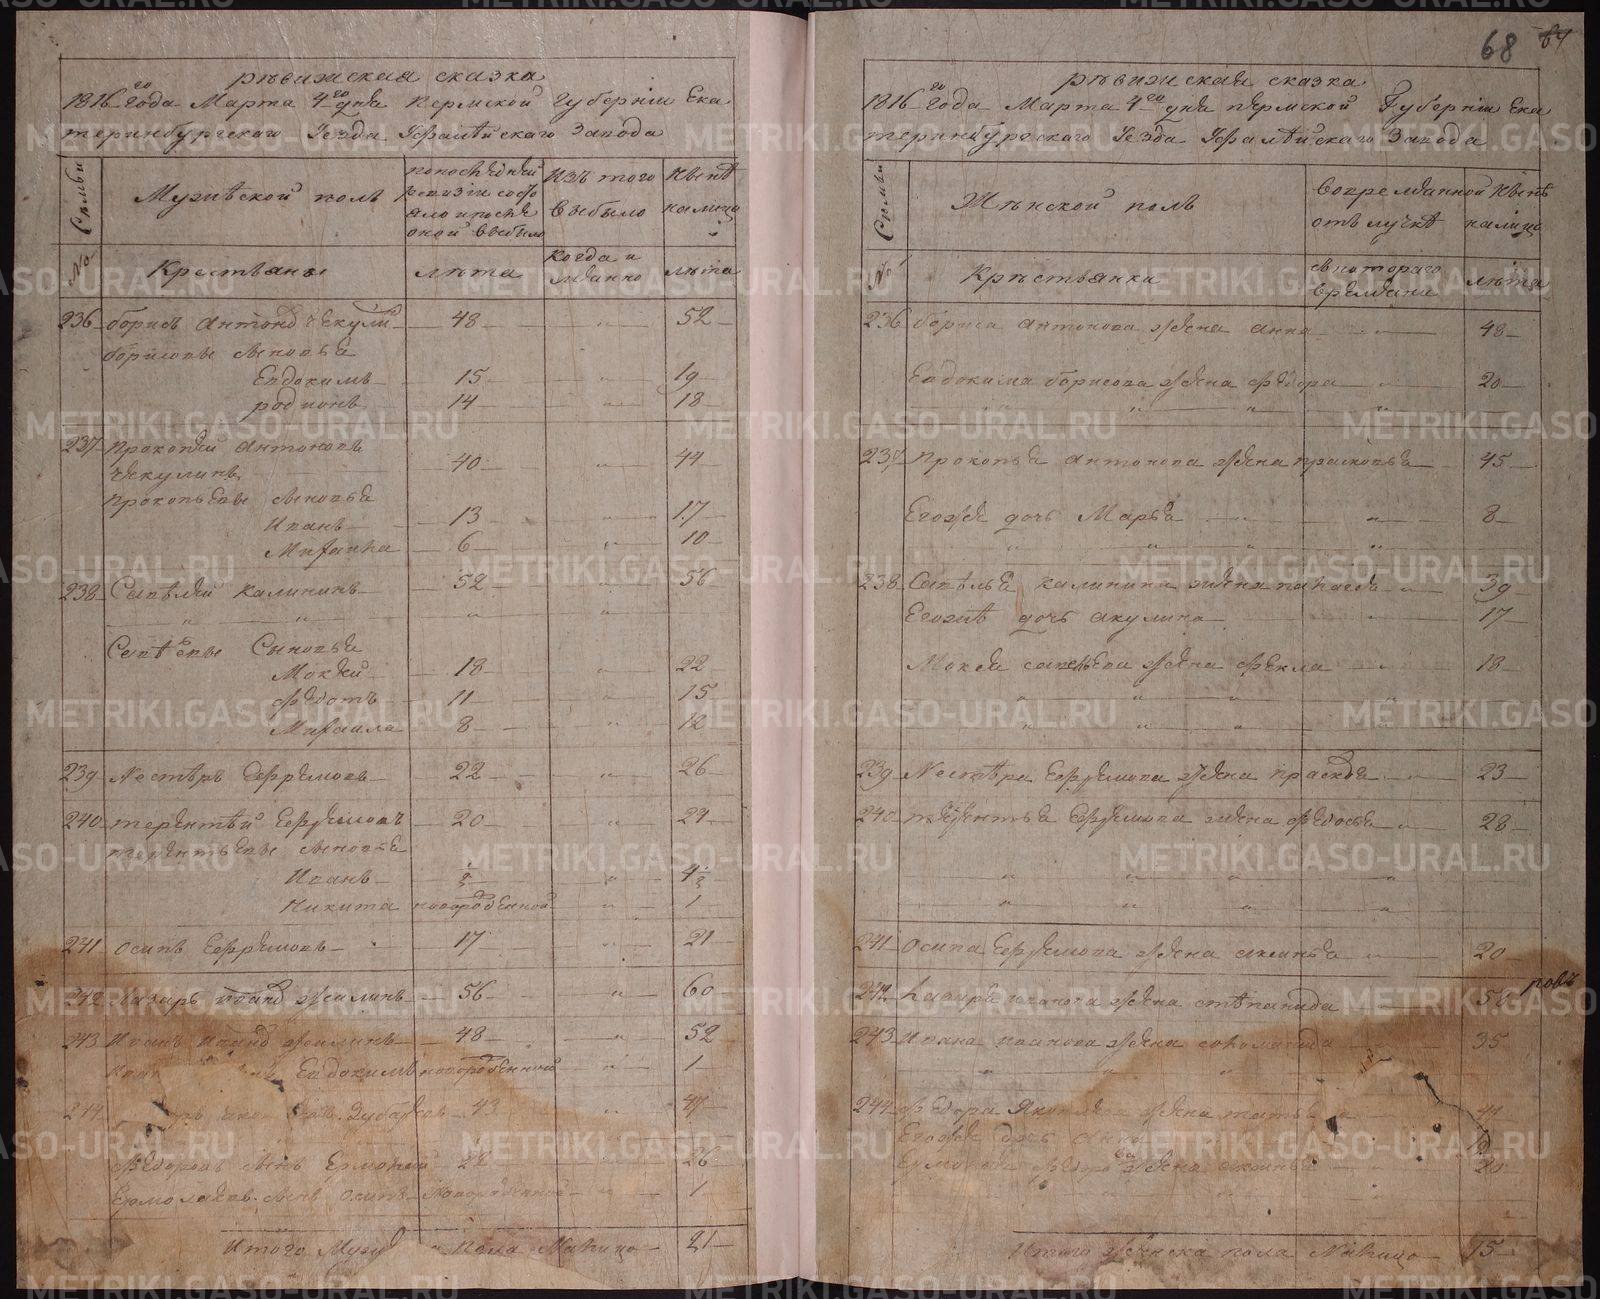 ревижская сказка
1816го года Марта 4го дня Пермской Губернiи Ека
теринбургского Уезда Уфалейского Завода
Семьи
Мужеской полъ
попоследней ревизiи состо
яло и после
оной выбыло
Изъ того
выбыло
Ныне
налицо
№
Крестьяне
лета
когда и
лета
236 борисъ Антоновъ Чекулинъ 48 „ 52
борисовы сыновья
Евдокимъ 15 „ 19
родионъ 14 „ 18
237 прокопей Антоновъ
Чекулинъ 40 „ 44
прокопьевы сыновья
Иванъ 13 „ 17
Михаила 6 „ 10
238 Савелей Калининъ 52 „ 56
Савельевы Сыновья
Мокей 18 „ 22
Федотъ 11 „ 15
Михаила 8 „ 12
239 Нестеръ Ефремовъ 22 „ 26
240 терентей Ефремовъ 20 „ 24
терентьевы сыновья
Иванъ ½ „ 4½
Никита новорожденной „ 1
241 Осипъ Ефремовъ 17 „ 21
242 Лазарь Ивановъ 56 „ 60
243 Иванъ Ивановъ 48 „ 52
Евдокимъ новорожденной „ 1
244 43 „ 47
Федоровъ сынъ Ермолай 22 „ 26
Ермолаевъ сынъ Осипъ новорожденной „ 1
Итого Муже пола Налицо 21
68 64
ревижская сказка
1816го года Марта 4го дня пермской Губернiи Ека
теринбургского Уезда Уфалейского Завода
Семьи
Женской полъ
Вовременной
отлучке
Ныне
налицо
№
Крестьянки
скотораго
времени
лета
236 бориса Антонова жена анна „ 48
Евдокима борисова жена Федора „ 20
237 прокопья Антонова жена прасковья 45
Егожъ дочь Марья „ 8
238 Савелья Калинина жена 39
Егожъ дочь акулина 17
Мокея савельева жена Фекла 18
239 Нестера Ефремова жена 23
240 терентья Ефремова жена Федосья „ 28
241 Осипа Ефремова жена аксинья 20
242 Лазаря Иванова жена степанида 56
243 Ивана Иванова жена соломанида 35
244 Федора Яковлева жена татьяна
Егожъ дочь Анна
Ермолая Федорова жена аксинья 20
Итого женска пола Налицо 15
ровъ
METRIKI.GASO-URAL.RU